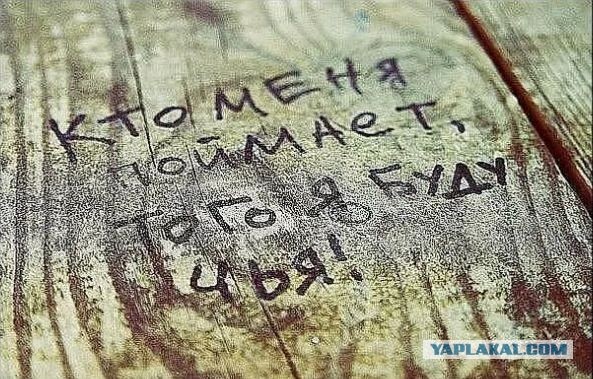 КТО МЕНЯ
ПОЙМАЕТ,
ТОГО Я БУДУ
ЧЬЯ!
YAPLAKAL.COM